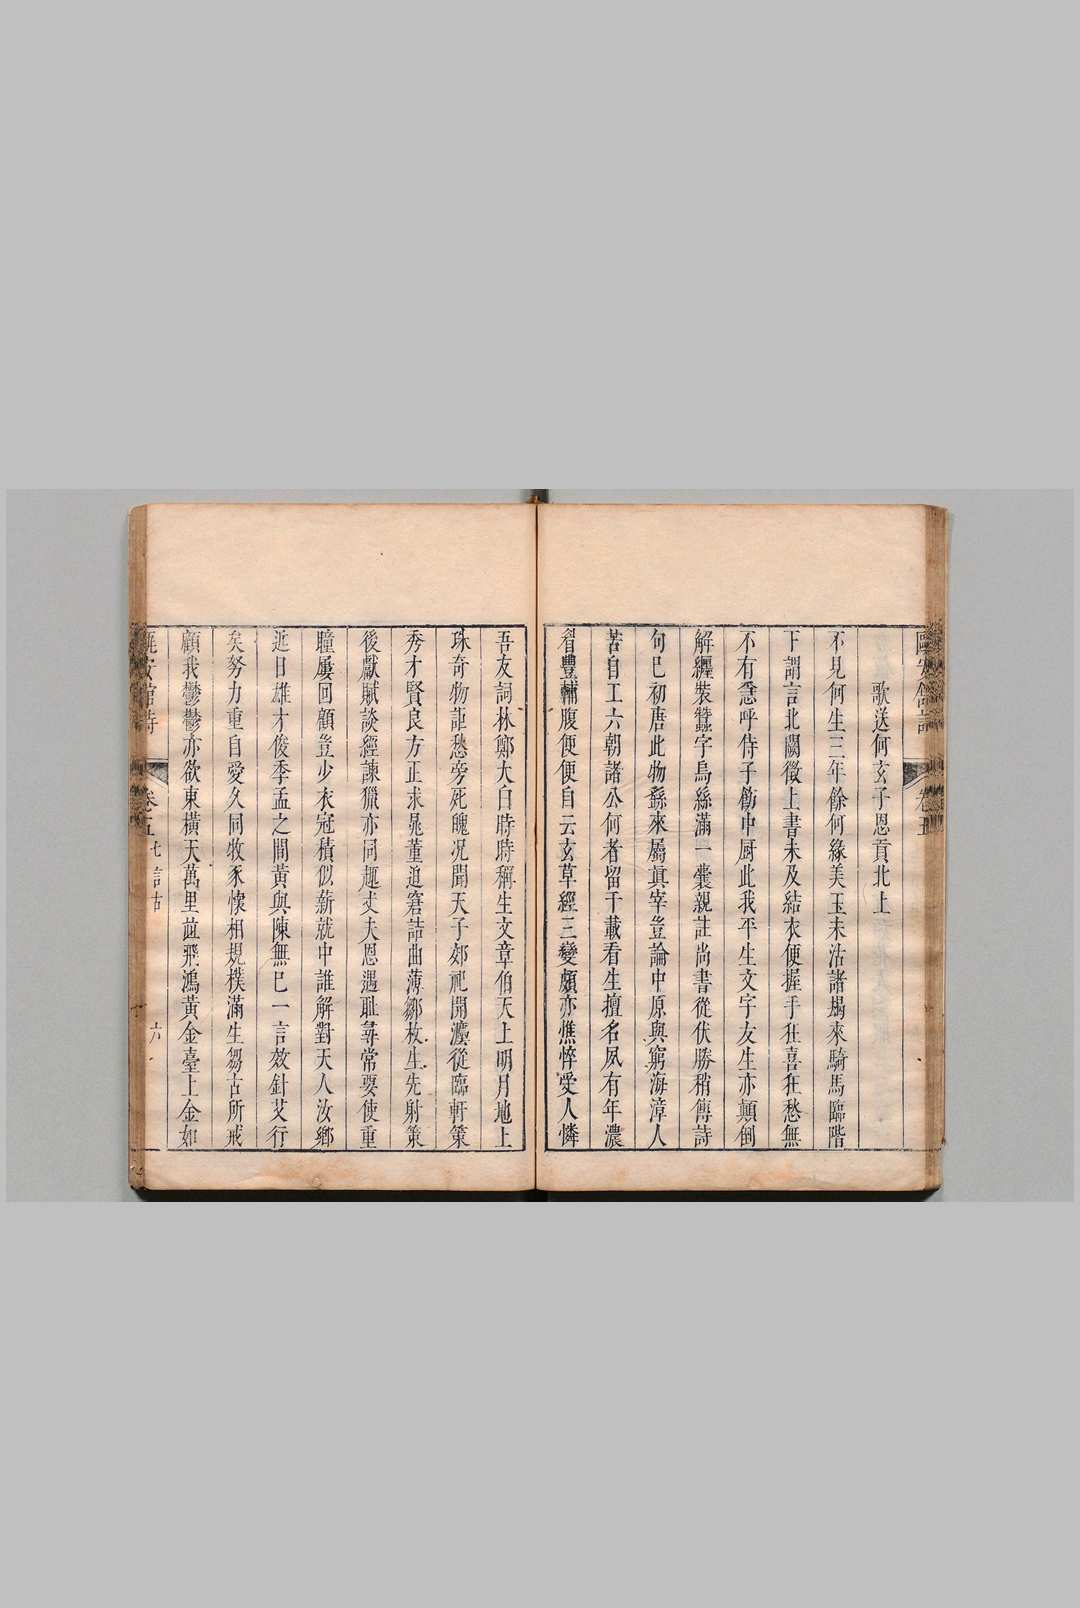 歌送何玄子恩貢北上
不見何生三年餘何緣美玉未沽諸場來騎馬臨階
下謂言北闕徵上書未及結衣便握手狂喜狂愁無
不有急呼侍子飭中厨此我平生文字友生亦顛倒
解纏裝蠶字烏絲滿一囊親註尚書從伏勝稍傳詩
句已初唐此物繇來屬真宰豈論中原與窮海漳人
苦自工六朝諸公何者留千載看生擅名夙有年濃
眉豐輔腹便便自云玄草經三變頗亦憔悴受人憐
吾友詞林鄭大白時時稱生文章伯天上明月地上
珠奇物詎愁旁死魄况聞天子郊祀開瀍從臨軒策
秀才賢良方正求晁董迫窘詰曲薄鄒枚生先射策
後獻賦談經諫獵亦同趣丈夫恩遇耻尋常要使重
瞳屢回顧豈少衣冠積似薪就中誰解對天人汝鄉
近日雄才俊季孟之間黃與陳無已一言效針艾行
矣努力重自愛久同牧豕懷相規樸滿生芻古所戒
顧我鬱鬱亦欲東橫天萬里竝飛鴻黃金臺上金如
卷五 七言古 六